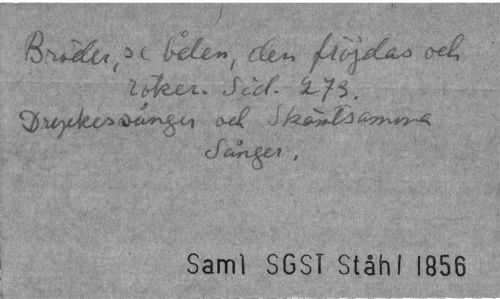 Bröder, se bålen, den fröjdas och
röker. Sid. 273.
Dryckessånger och Skämtsamma
Sånger.
Saml SGST Ståhl 1856